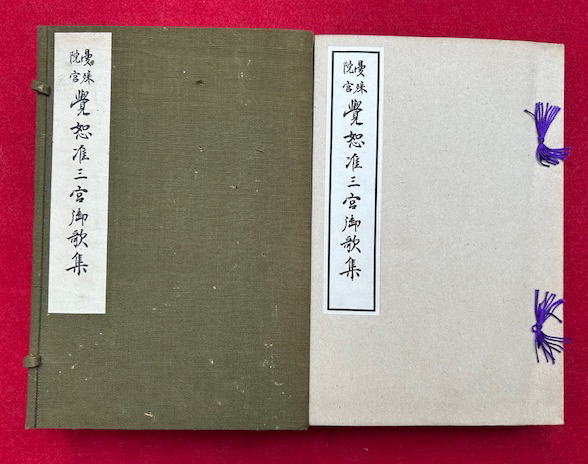 曼殊
院宮
覺恕准三宮御歌集
曼殊
院宮
覺恕准三宮御歌集